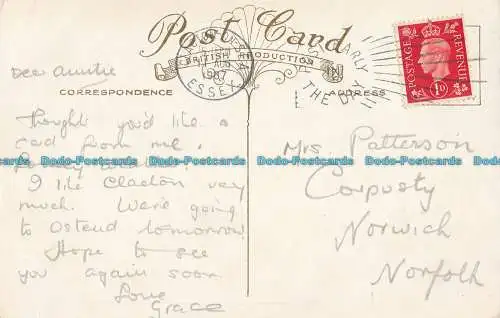 Post Card
BRITISH PRODUCTION
CORRESPONDENCE
ADDRESS
Dear Auntie
Thought you'd like a
card from me.
I like Clacton very
much. We're going
to Ostend tomorrow.
Hope to see
you again soon
Love
Grace
Mrs. Patterson
Corpusty
Norwich
Norfolk
ESSEX
EARLY
THE DAY
POSTAGE
REVENUE
1D
Dodo-Postcards Dodo-Postcards Dodo-Postcards Dodo-Postcards Dodo-Postcards